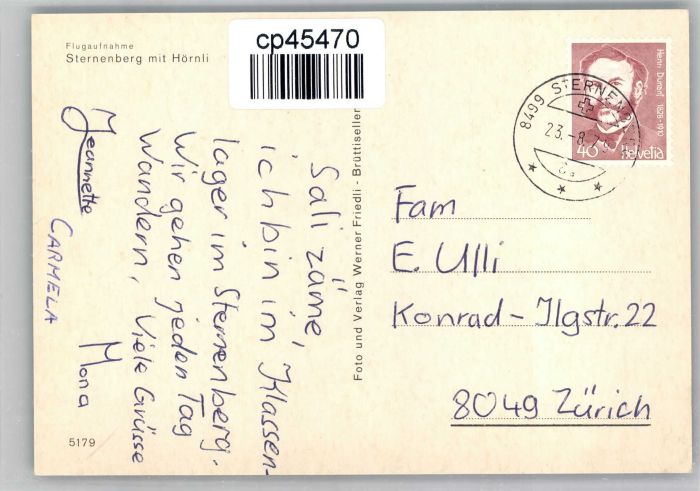 cp45470
Flugaufnahme
Sternenberg mit Hörnli
Sali zäme,
ich bin im Klassen-
lager im Sternenberg.
Wir gehen jeden Tag
Wandern. Viele Grüsse
Jeannette
Mona
CARMELA
5179
Foto und Verlag Werner Friedli - Brüttiseller
8499 STERNENB
23.-8.7
Henri Dunant 1828-1910
40 Helvetia
Fam
E. Ulli
Konrad-Ilgstr. 22
8049 Zürich